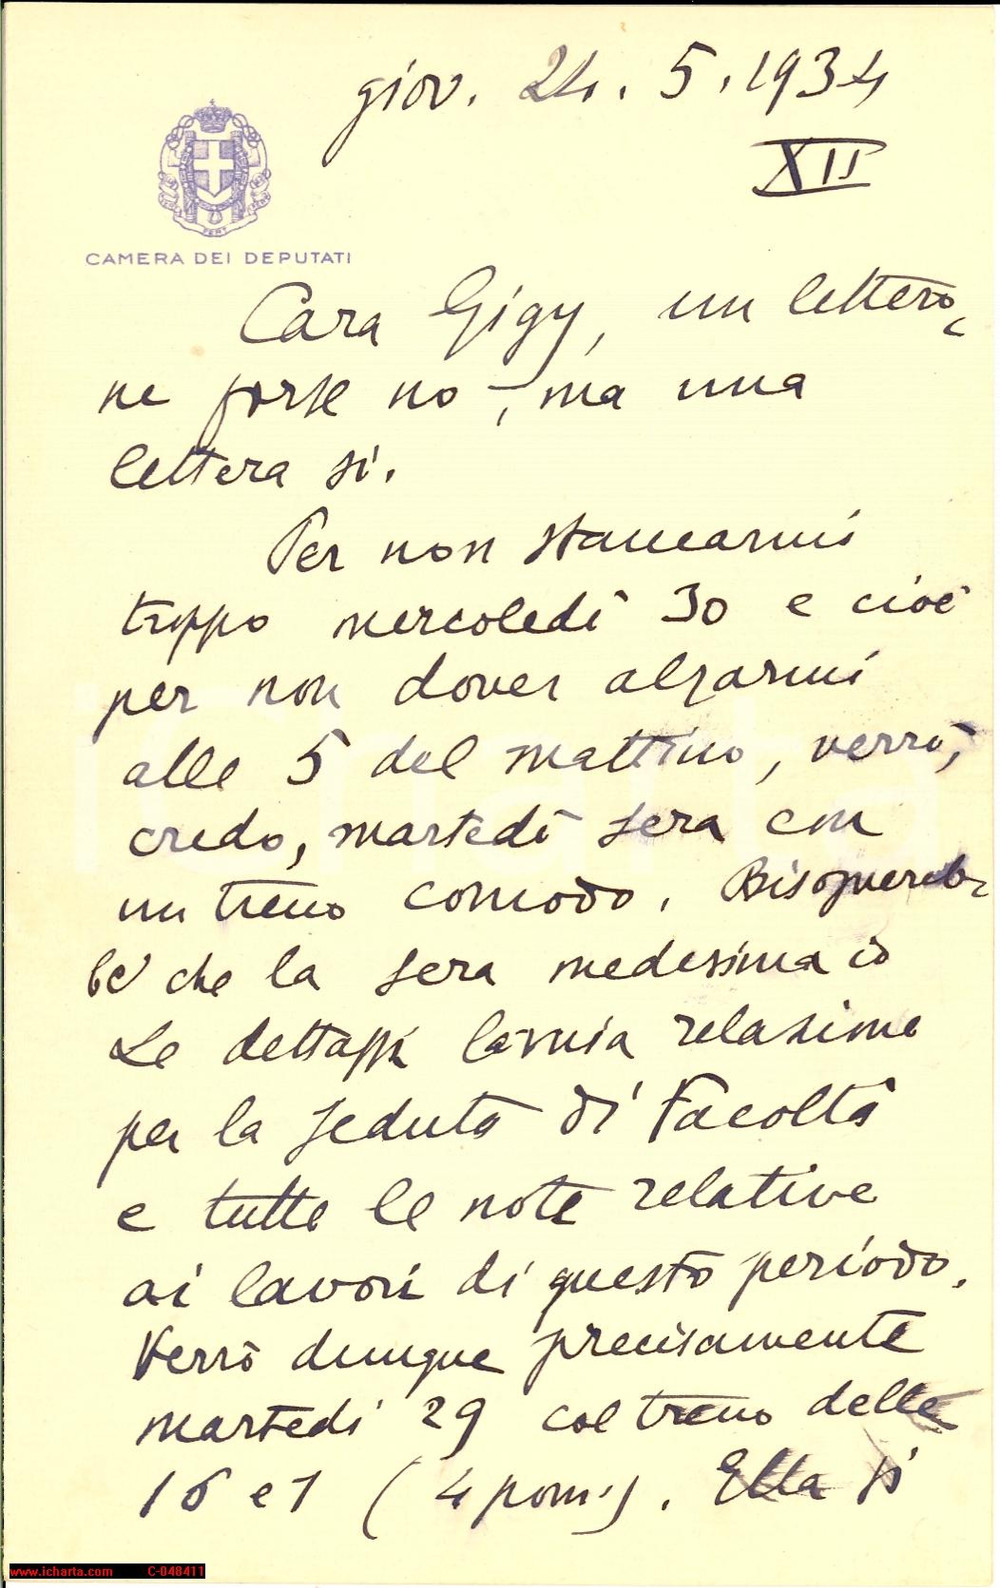 giov. 24. 5. 1934
XII
FERT
CAMERA DEI DEPUTATI
Cara Gigy, un lettero-
ne forse no, ma una
lettera sì.
Per non stancarmi
troppo mercoledì 30 e cioè
per non dover alzarmi
alle 5 del mattino, verrò,
credo, martedì sera con
un treno comodo. Bisognereb-
be che la sera medesima io
Le dettassi la mia relazione
per la seduta di Facoltà
e tutte le note relative
ai lavori di questo periodo.
Verrò dunque precisamente
martedì 29 col treno delle
16 e 1 (4 pom.). Ella si
www.icharta.com C-048411